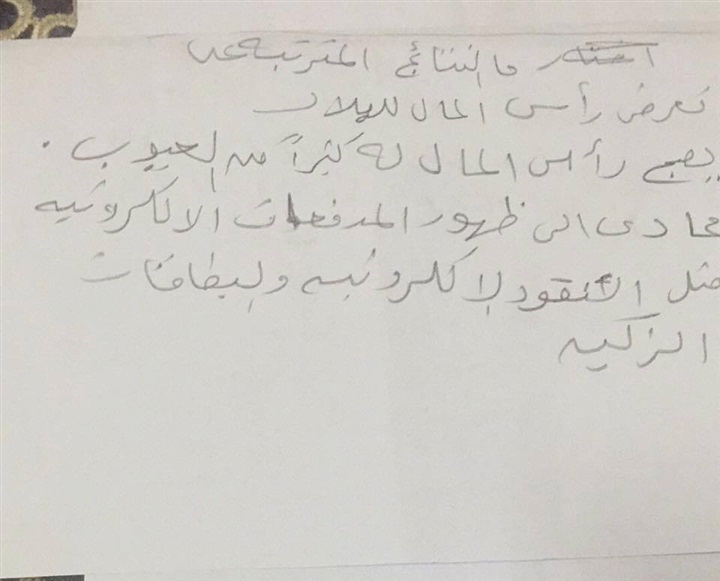 ما النتائج المترتبه على
تعرض رأس المال للهلاك
يصبح رأس المال له كثيراً من العيوب .
مما ادى الى ظهور المدفعات الالكرونيه
مثل النقود الإكلرونيه والبطاقات
الزكيه